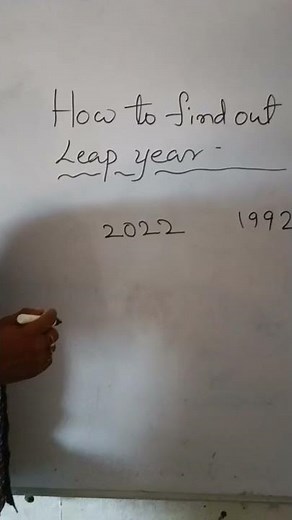 How to find out
Leap year.
2022 1992